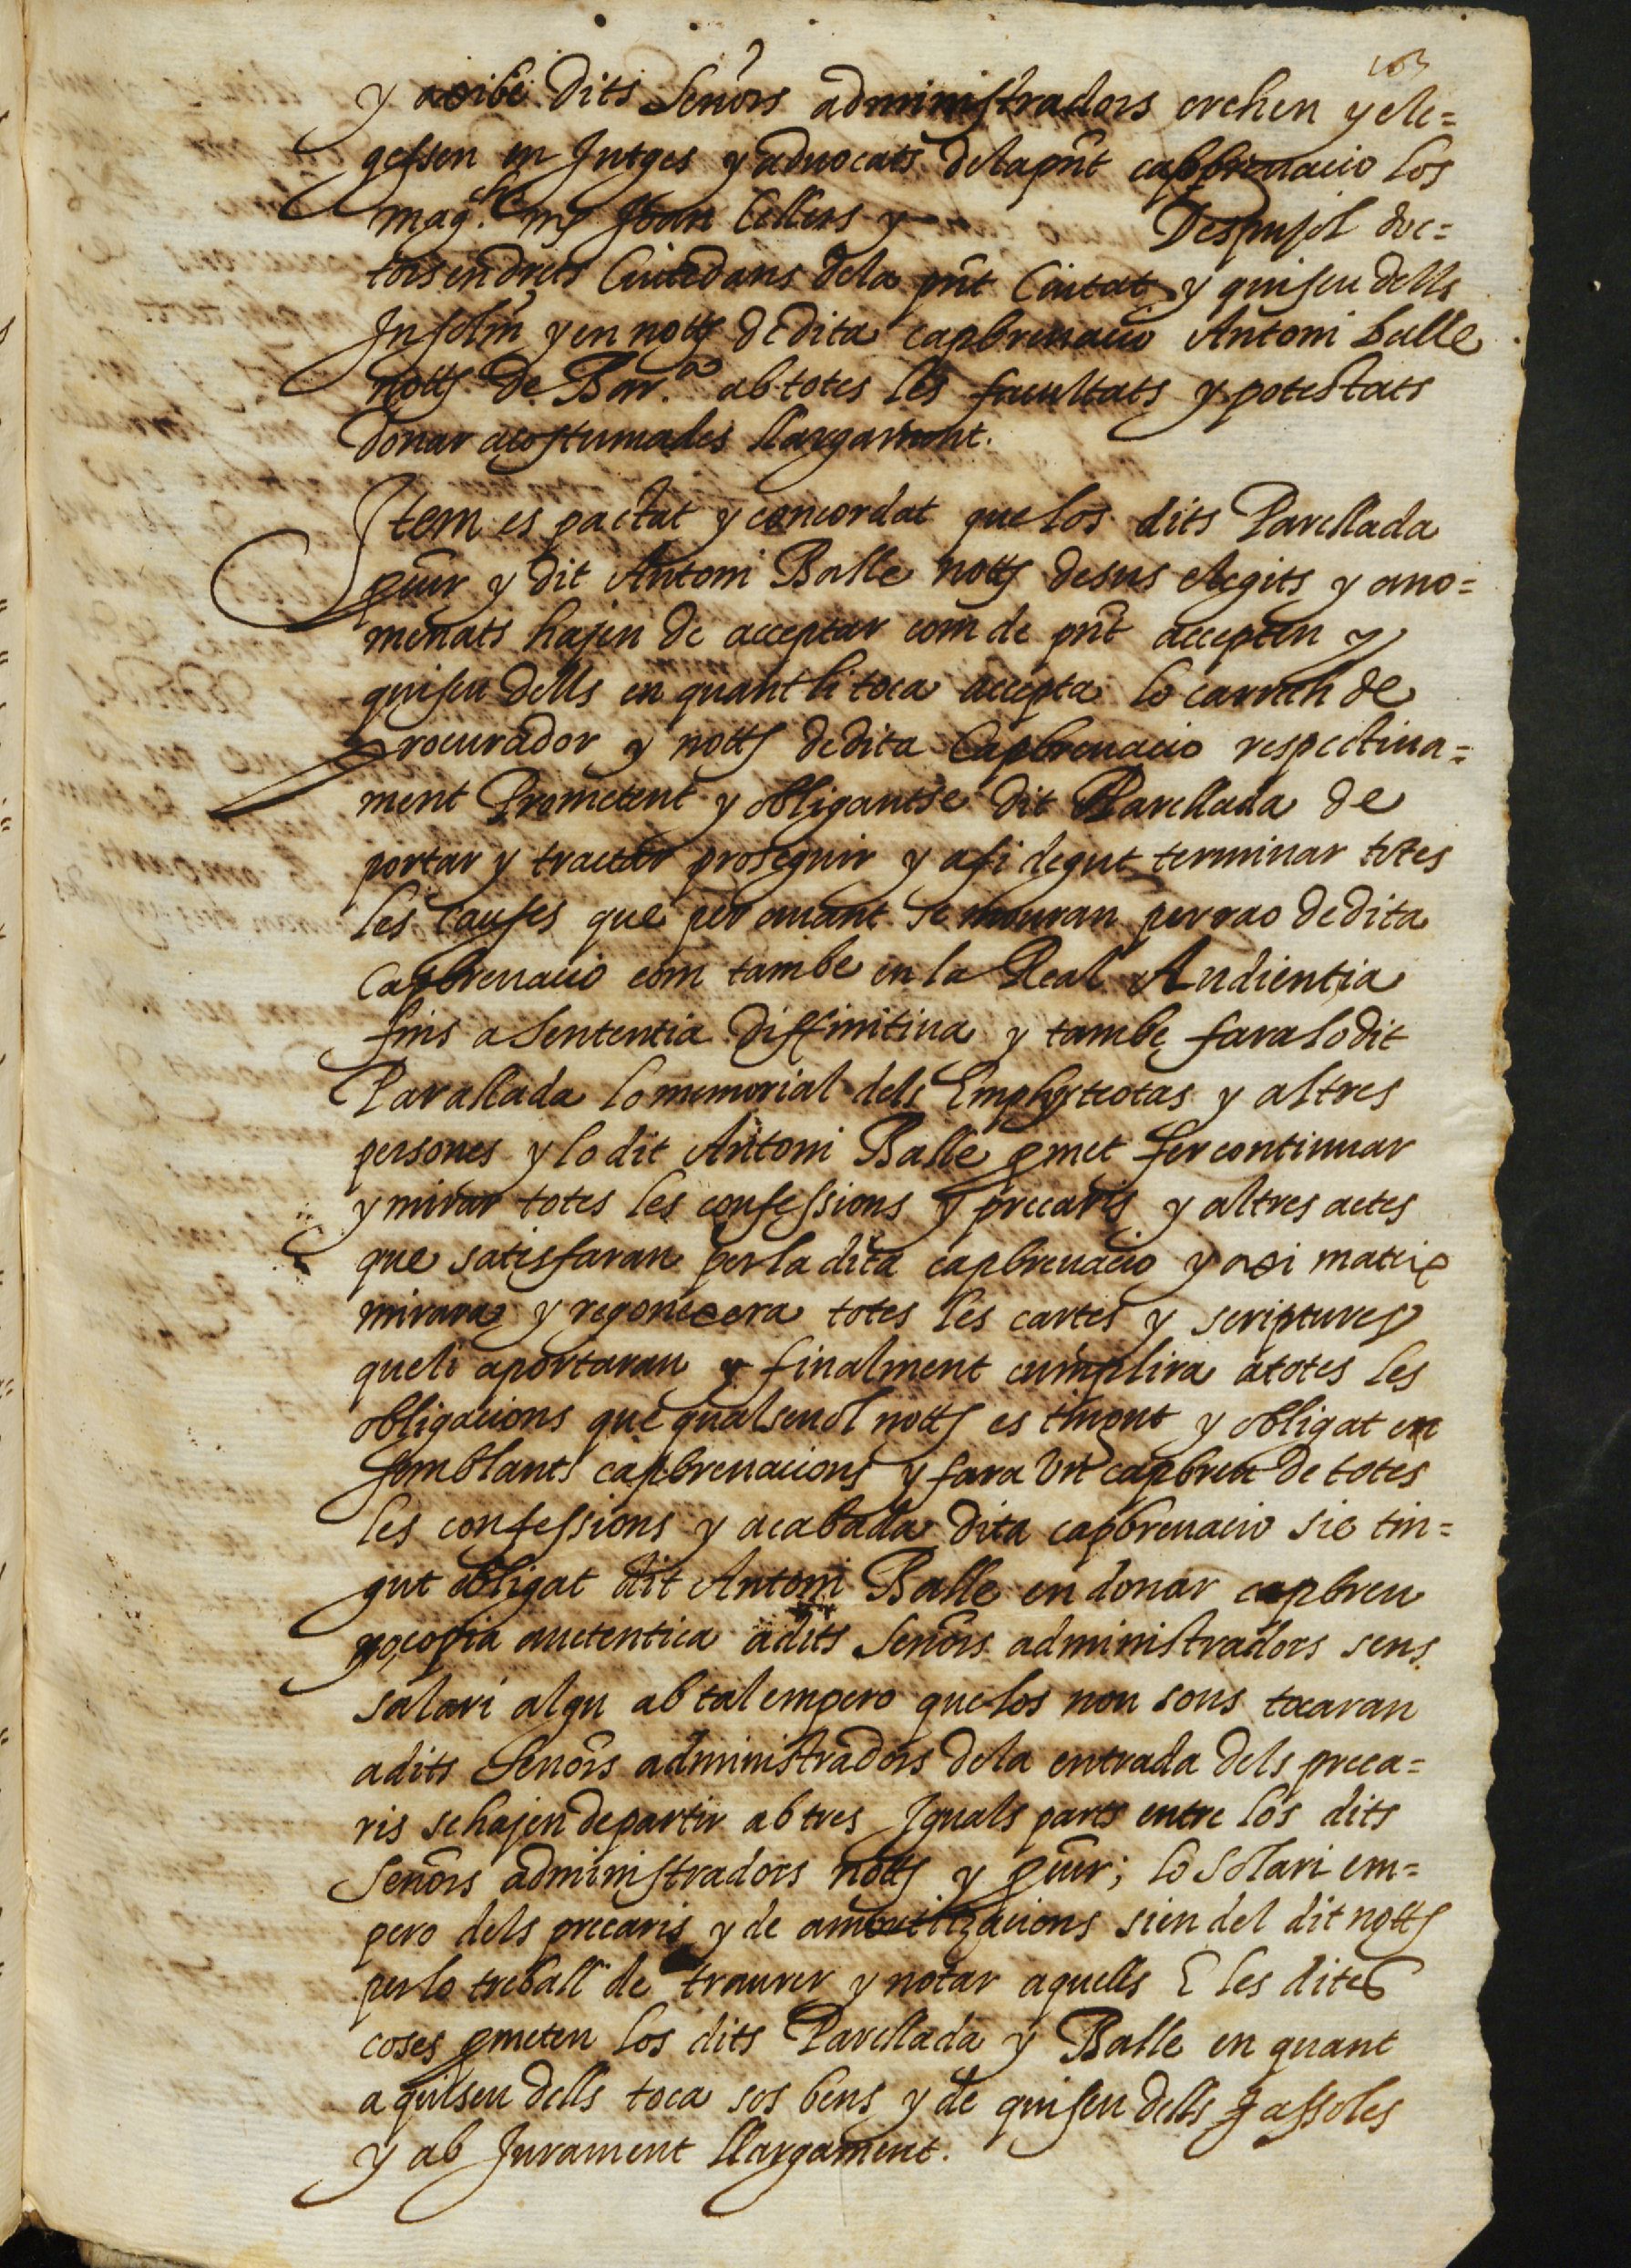 163
y axibe dits Señors administradors crehen y ele=
gessen en Jutges y advocats dela pñt capbrevacio los
magchs. mß Joan Cellers y Despujol doc=
tors en drets Ciutedans dela pñt Ciutat y quiseu dells
Insolm̃ y en notts dedita capbrevacio Antoni balle
notts de Bar.ª ab totes les facultats y potestats
donar acostumades llargament.
Item es pactat y concordat que los dits Parellada
p̃ur y dit Antoni Balle notts desus elegits y ano=
menats hajen de acceptar com de pñt accepten y
quiseu dells en quant li toca accepta lo carrech de
Procurador y notts dedita Capbrevacio respectiua=
ment Prometent y obligantse dit Parellada de
portar y tractar proseguir y a fi degut terminar totes
les causes que per auant se mouran per rao dedita
Capbreuacio com tambe en la Real Audientia
fins a sententia diffinitiua y tambe fara lo dit
Parallada lo memorial dels Emphyteotas y altres
persones y lo dit Antoni Balle ꝑmet fer continuar
y mirar totes les confessions y precaris y altres actes
que satisfaran per la dita capbreuacio y axi mateix
mirara y regonexera totes les cartes y scriptures
queli aportaran y finalment cumplira atotes les
obligacions que qualseuol notts es tinent y obligat en
semblants capbreuacions y fara Vn capbreu de totes
les confessions y acabada dita capbreuacio sie tin=
gut obligat dit Antoni Balle en donar capbreu
y o copia auctentica adits Señors administradors sens
salari algu ab tal empero que los nou sous tocaran
adits Señors administradors dela entrada dels preca=
ris se hajen de partir ab tres Iguals parts entre los dits
Señors administradors notts y p̃ur; lo Salari em=
pero dels precaris y de amortitzacions sien del dit notts
per lo treball de traurer y notar aquells E les dites
coses ꝑmeten los dits Parellada y Balle en quant
a quiseu dells toca sos bens y de quiseu dells assoles
y ab Jurament llargament.